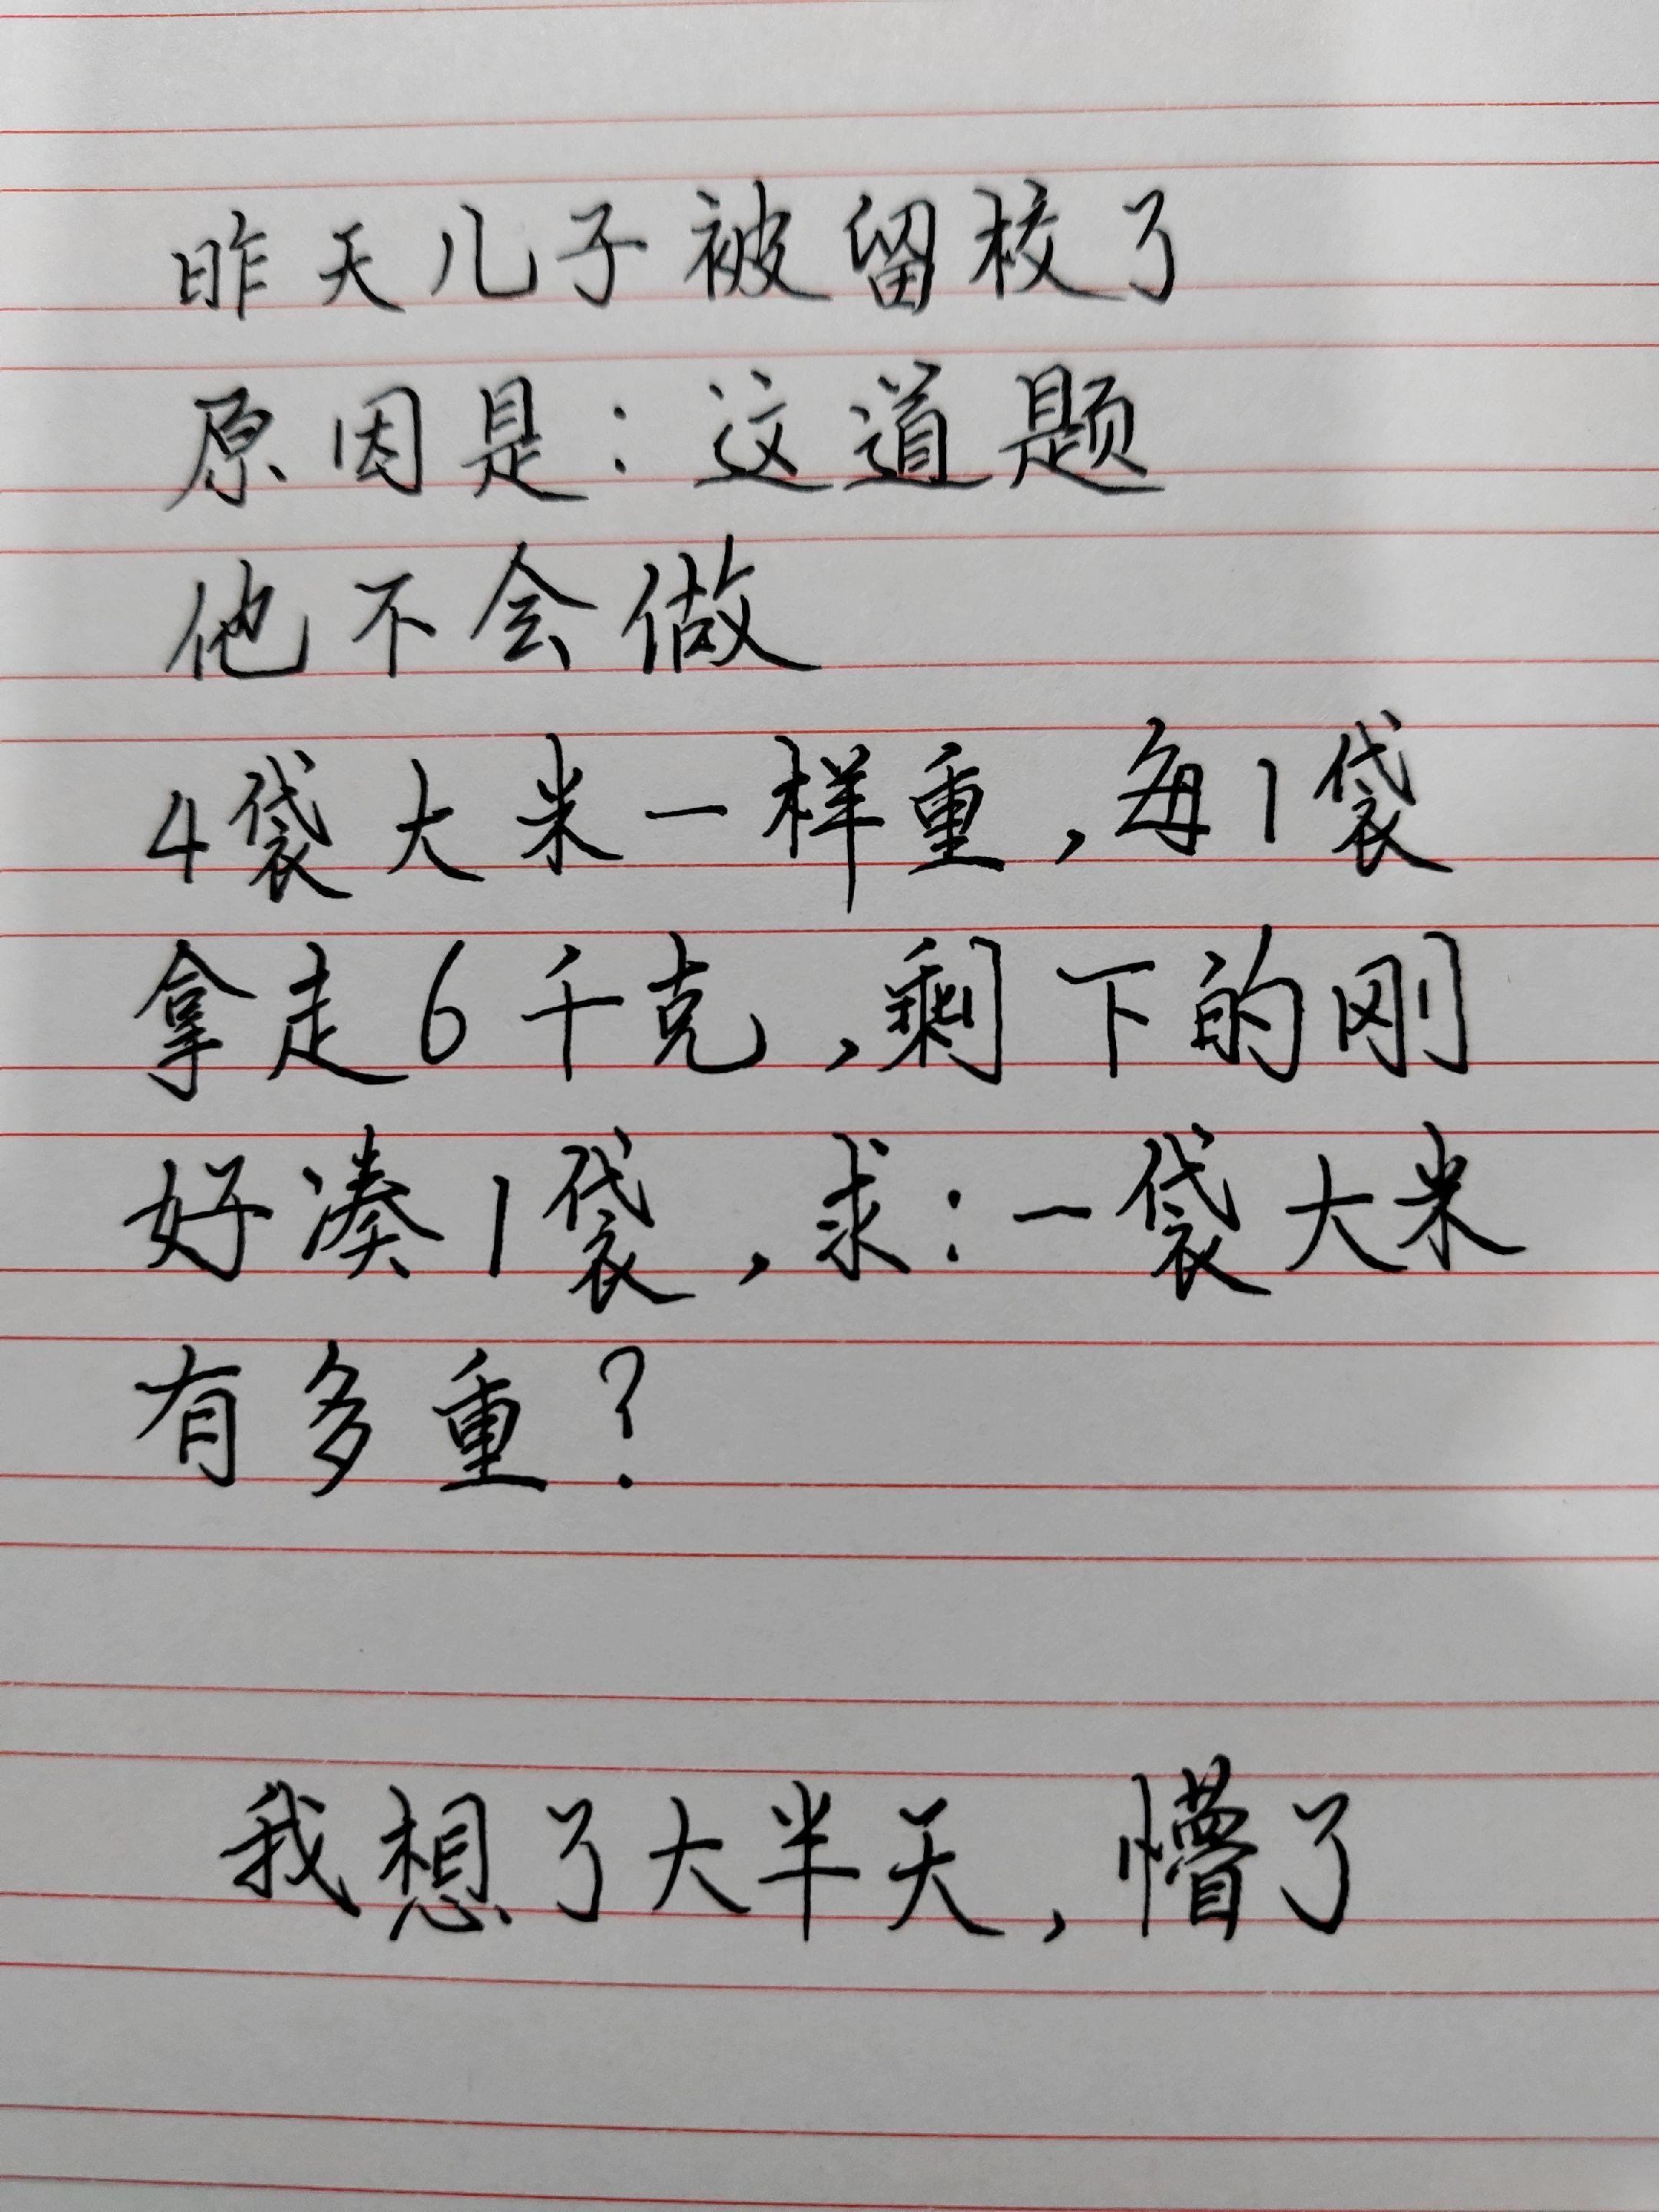 昨天儿子被留校了
原因是：这道题
他不会做
4袋大米一样重，每1袋
拿走6千克，剩下的刚
好凑1袋，求：一袋大米
有多重？
我想了大半天，懵了